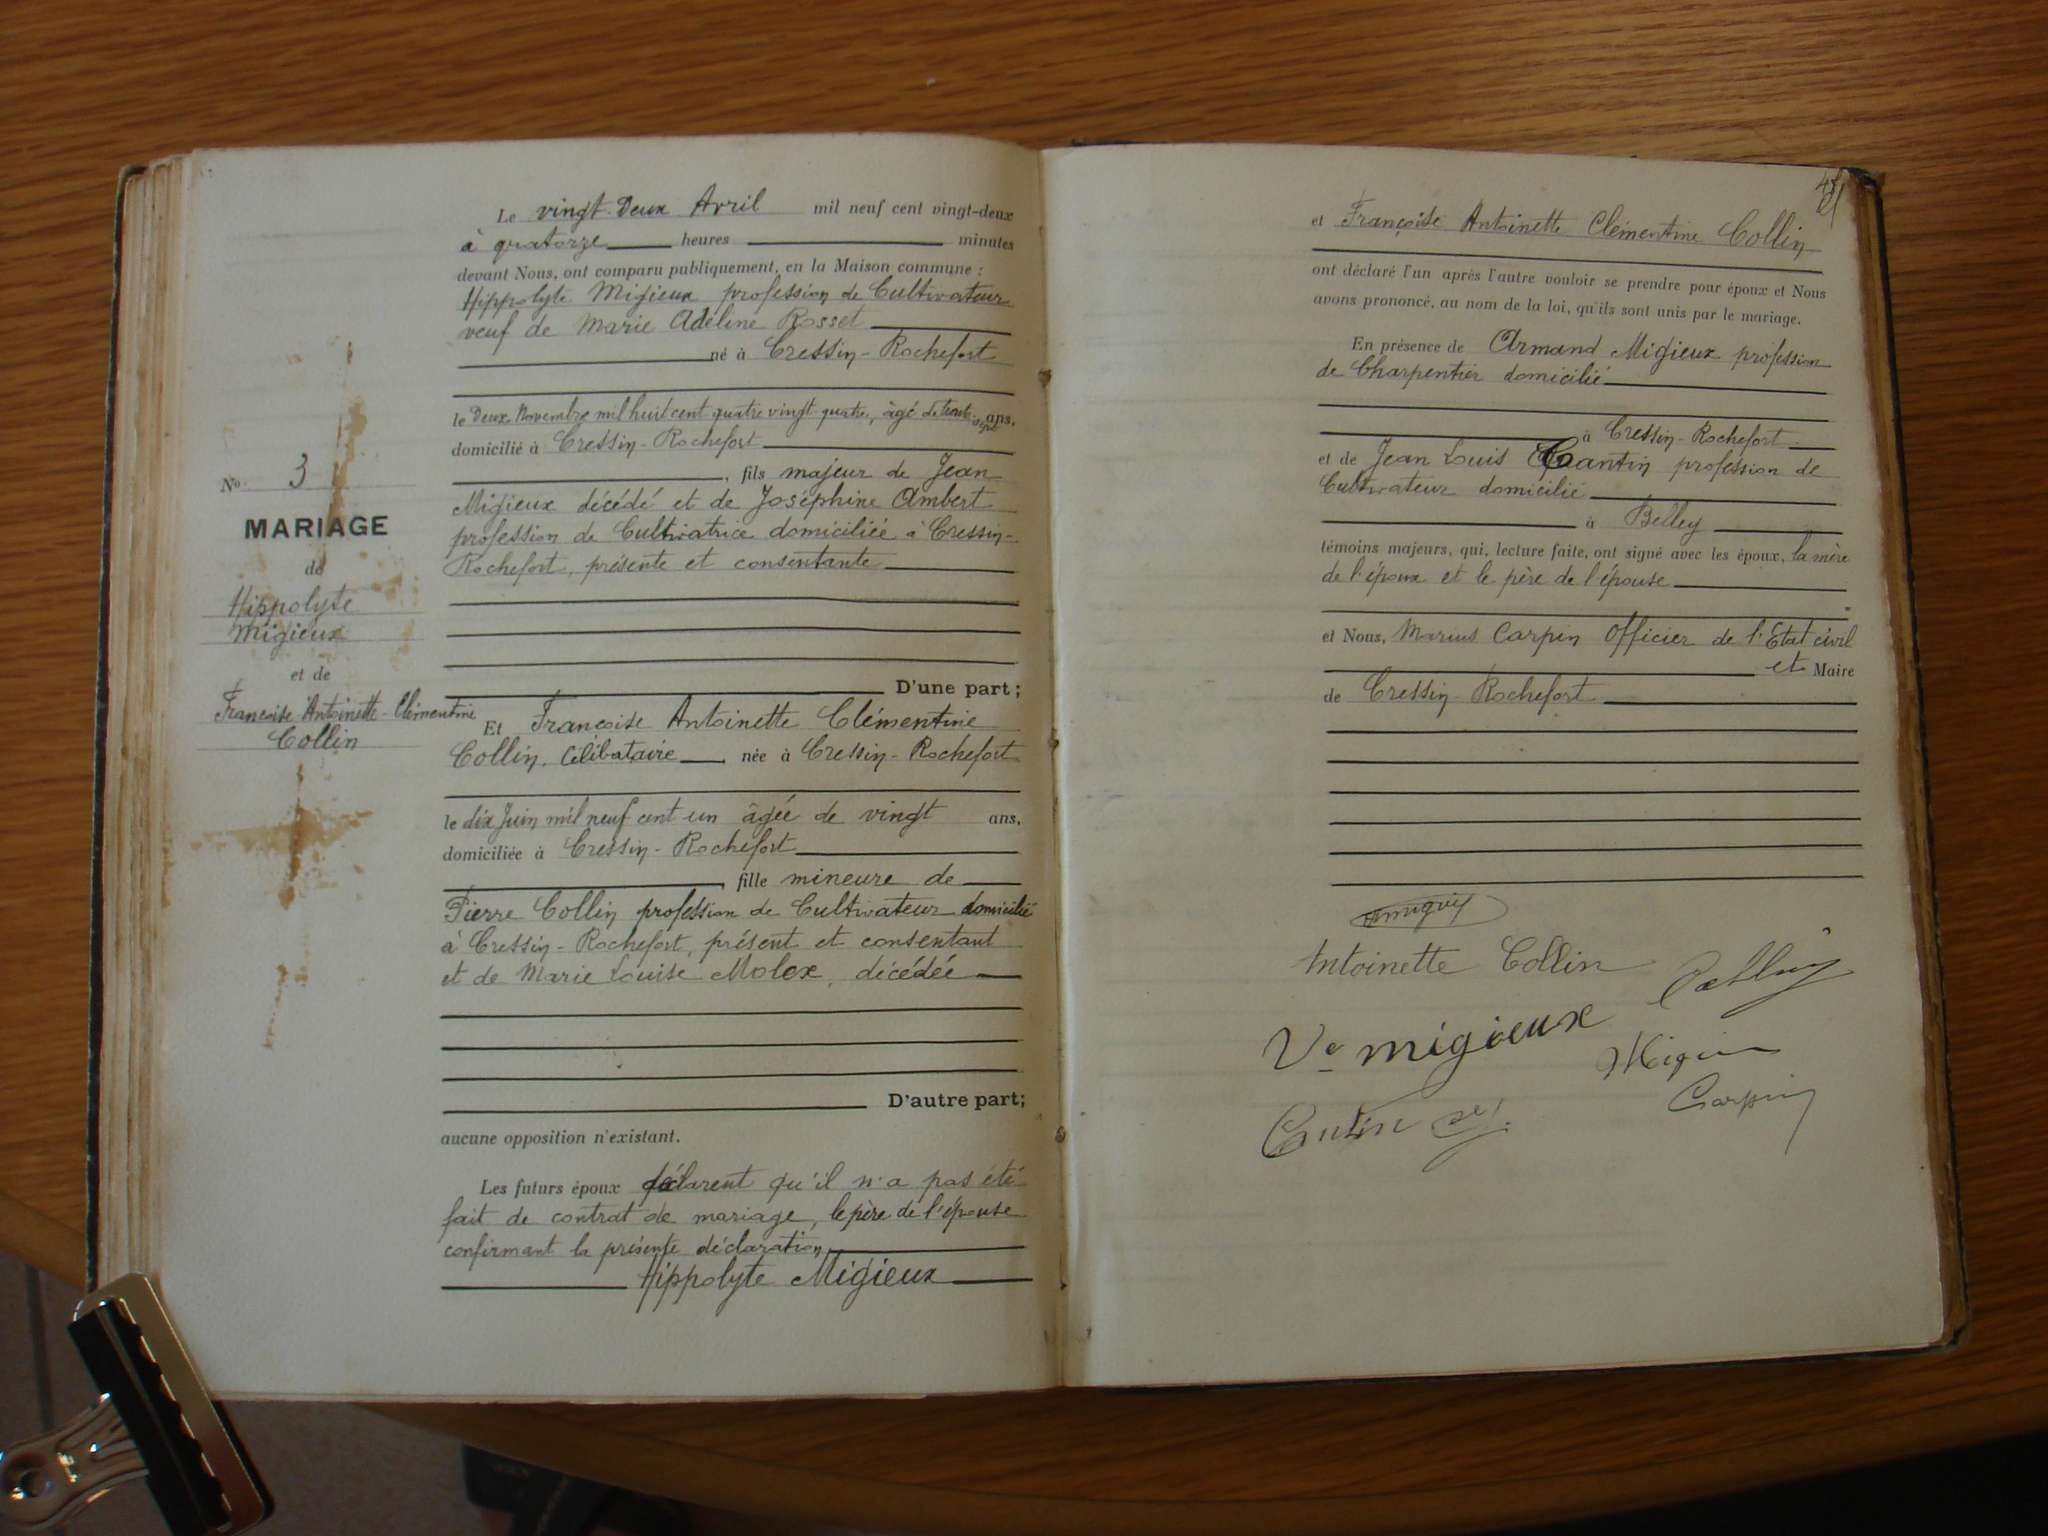 N° 3
MARIAGE
de
Hippolyte
Migieux
et de
Françoise Antoinette-Clémentine
Collin
Le vingt-Deux Avril mil neuf cent vingt-deux
à quatorze heures minutes
devant Nous, ont comparu publiquement, en la Maison commune :
Hippolyte Migieux profession de Cultivateur
veuf de Marie Adéline Rosset
né à Cressin-Rochefort
le Deux Novembre mil huit cent quatre vingt-quatre, âgé de trente-sept ans,
domicilié à Cressin-Rochefort
, fils majeur de Jean
Migieux décédé et de Joséphine Ambert
profession de Cultivatrice domiciliée à Cressin-
Rochefort, présente et consentante
D'une part ;
Et Françoise Antoinette Clémentine
Collin, Célibataire , née à Cressin-Rochefort
le dix Juin mil neuf cent un âgée de vingt ans,
domiciliée à Cressin-Rochefort
, fille mineure de
Pierre Collin profession de Cultivateur domicilié
à Cressin-Rochefort, présent et consentant
et de Marie Louise Molex, décédée
D'autre part;
aucune opposition n'existant.
Les futurs époux déclarent qu'il n'a pas été
fait de contrat de mariage, le père de l'épouse
confirmant la présente déclaration
Hippolyte Migieux
et Françoise Antoinette Clémentine Collin
ont déclaré l'un après l'autre vouloir se prendre pour époux et Nous
avons prononcé, au nom de la loi, qu'ils sont unis par le mariage.
En présence de Armand Migieux profession
de Charpentier domicilié
à Cressin-Rochefort
et de Jean Louis Cantin profession de
Cultivateur domicilié
à Belley
témoins majeurs, qui, lecture faite, ont signé avec les époux, la mère
de l'époux et le père de l'épouse
et Nous, Marius Carpin Officier de l'Etat civil
et Maire
de Cressin-Rochefort
Antoinette Collin
Collin
Ve migieux
Migieux
Carpin
Cantin